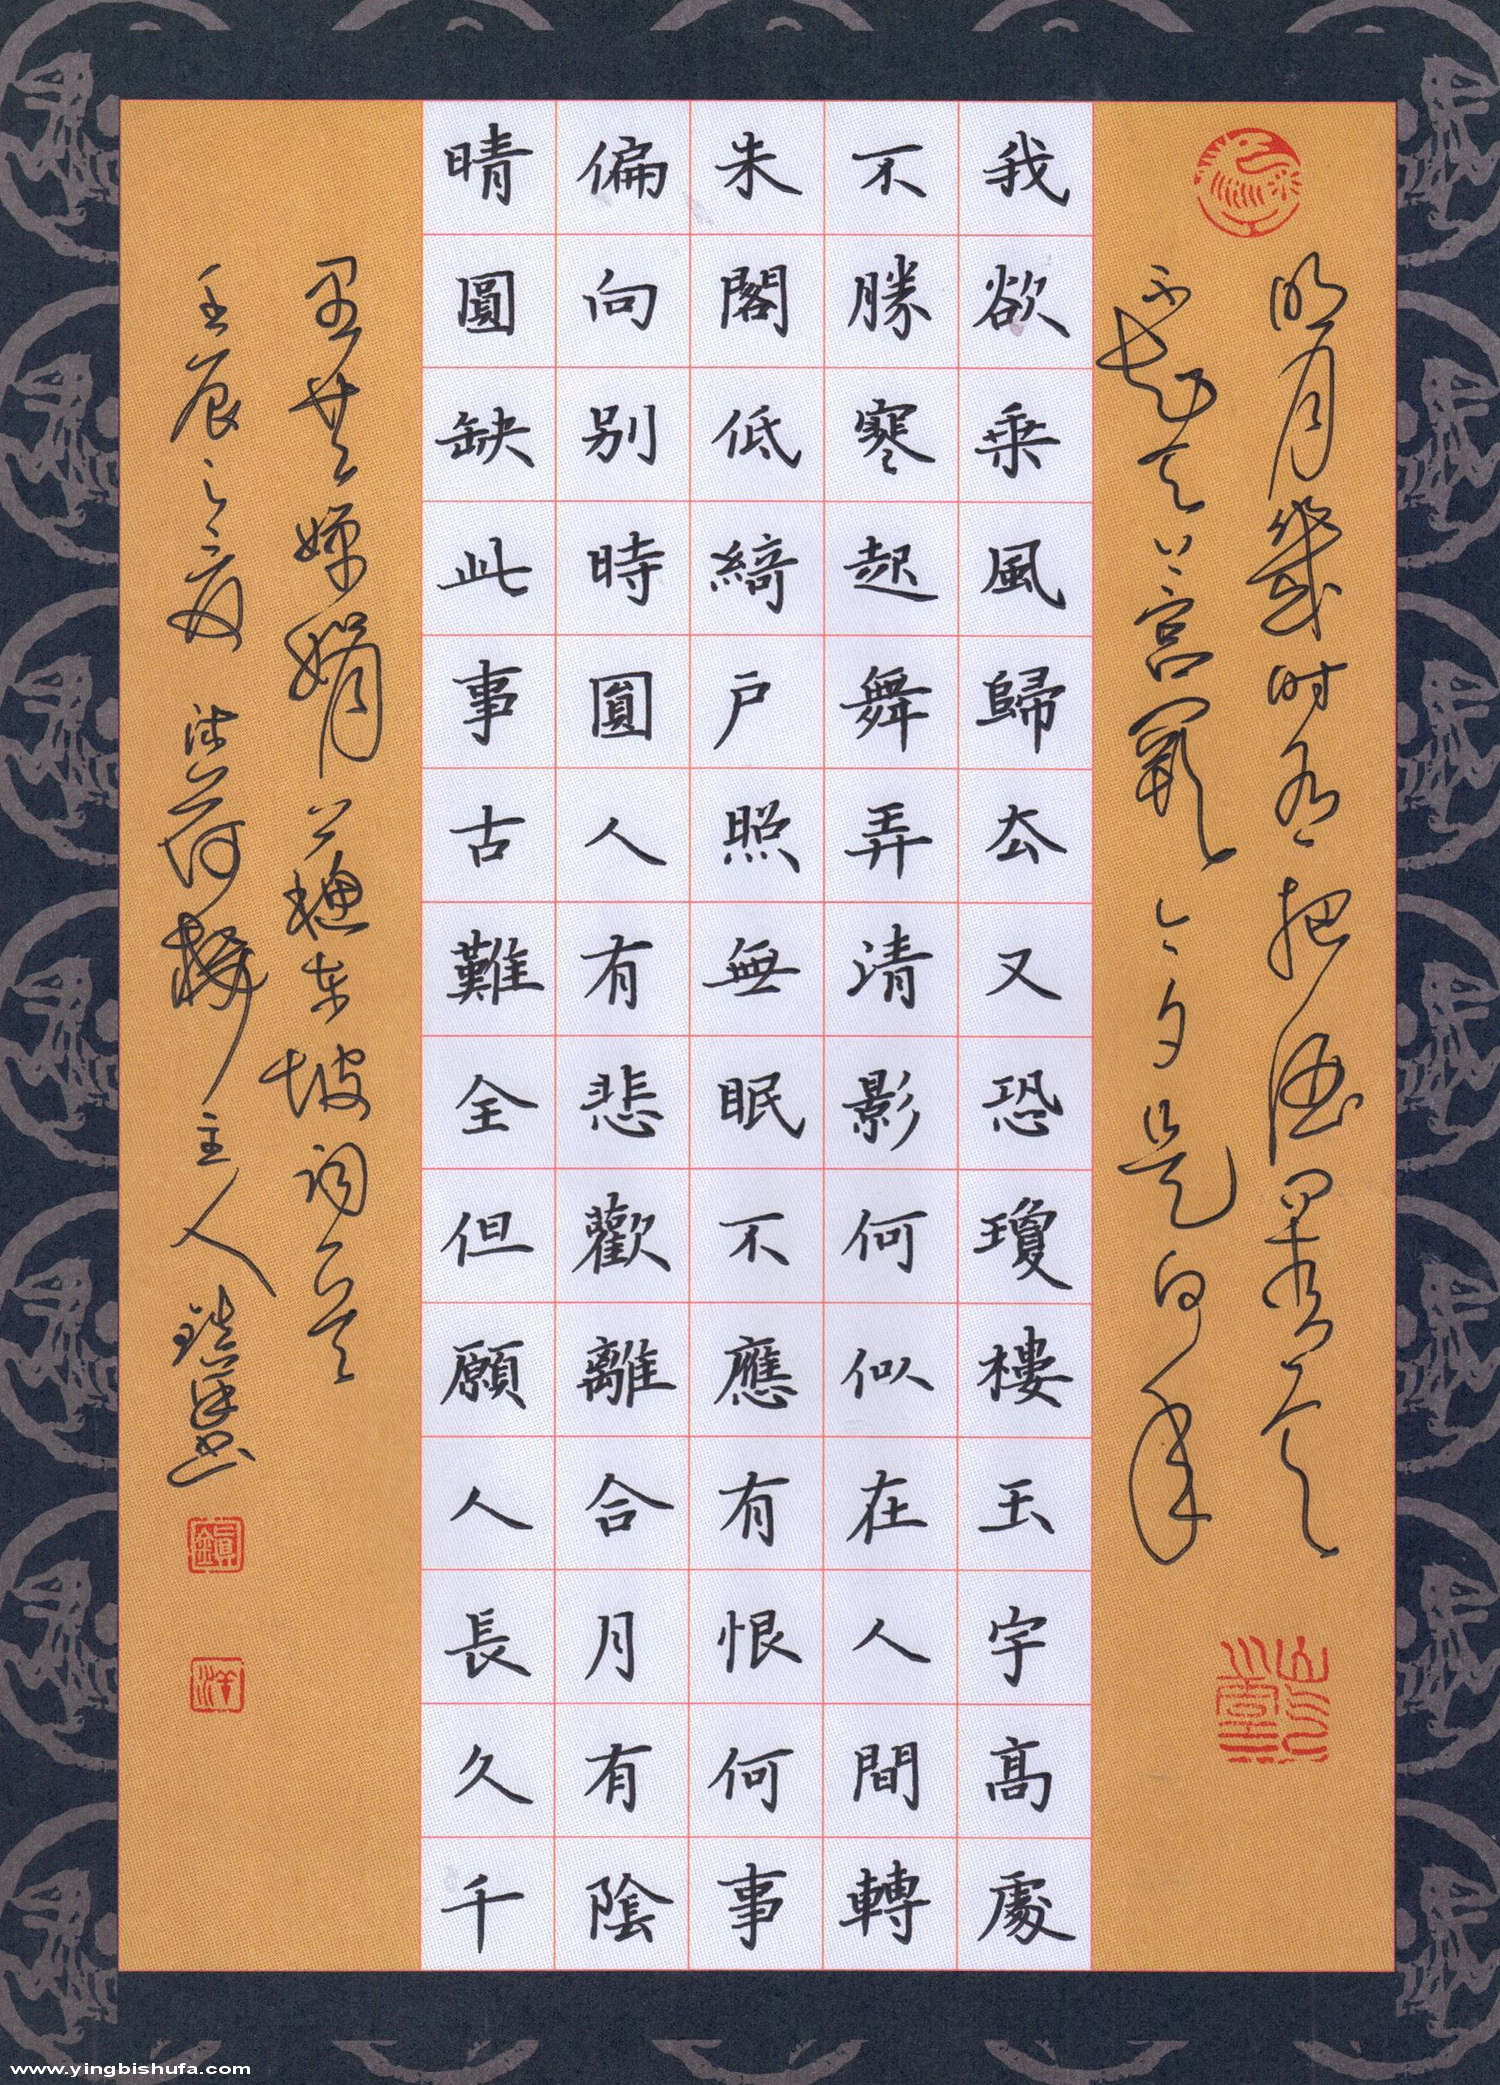 明月幾时有把酒問青天
不知天上宮闕今夕是何年
我欲乘風歸去又恐瓊樓玉宇高處
不勝寒起舞弄清影何似在人間轉
朱閣低綺户照無眠不應有恨何事
偏向别時圓人有悲歡離合月有陰
晴圓缺此事古難全但願人長久千
里共嬋娟 蘇東坡词一首
壬辰之夏 荷 主人鎮洋書
鎮
洋
www.yingbishufa.com